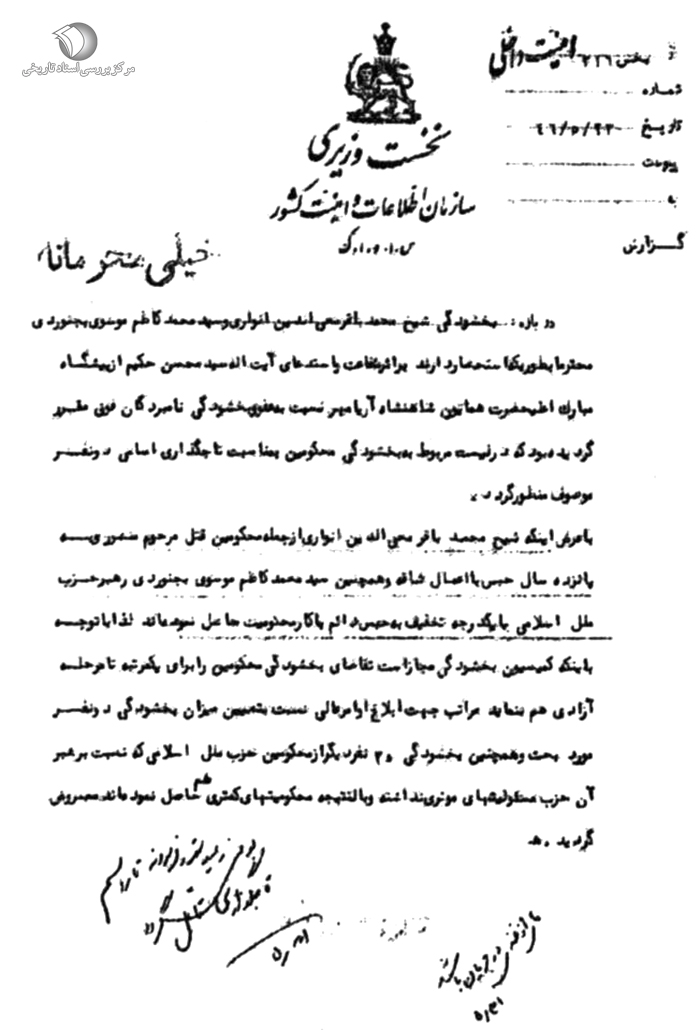 مرکز بررسی اسناد تاریخی
بخش ۳۱۶ امنیت داخلی
شماره
تاریخ ۴۶/۵/۲۳
پیوست
به
نخست وزیری
سازمان اطلاعات و امنیت کشور
س.ا.و.ا.ک
گزارش
خیلی محرمانه
درباره : بخشودگی شیخ محمد باقر محی الدین انواری و سید محمد کاظم موسوی بجنوردی
محترما بطوریکه استحضار دارند بر اثر شفاعت واستدعای آیت اله سید محسن حکیم از پیشگاه
مبارک اعلیحضرت همایون شاهنشاه آریامهر نسبت به عفو و بخشودگی نامبردگان فوق مقرر
گردیده بود که در لیست مربوط به بخشودگی محکومین بمناسبت تاجگذاری اسامی دونفر
موصوف منظور گردد .
باعرض اینکه شیخ محمد باقر محی الدین انواری از جمله محکومین قتل مرحوم منصور به
پانزده سال حبس با اعمال شاقه و همچنین سید محمد کاظم موسوی بجنوردی رهبر حزب
ملل اسلامی با یکدرجه تخفیف به حبس دائم با کار محکومیت حاصل نموده اند لذا باتوجه
باینکه کمیسیون بخشودگی مجاز است تقاضای بخشودگی محکومین را برای یکمرتبه تا مرحله
آزادی هم بنماید مراتب جهت ابلاغ اوامر عالی نسبت بتعیین میزان بخشودگی دونفر
مورد بحث و همچنین بخشودگی نفر دیگر از محکومین حزب ملل اسلامی که نسبت برهبر
آن حزب مسئولیتهای موثری نداشته و بالنتیجه محکومیتهای کمتری هم حاصل نموده اند معروض
گردید . ه
در جریان باشد